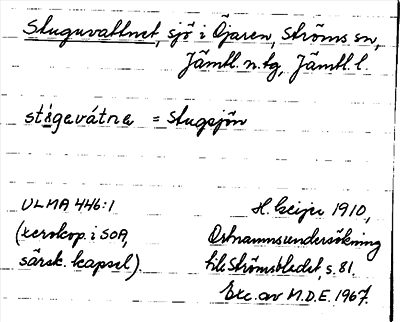 Stuguvattnet, sjö i Öjaren, Ströms sn,
Jämtl. n. tg, Jämtl. l.
stúgevátne = Stugsjön
ULMA 446:1
(xerokop. i SOA,
särsk. kapsel).
H. Geijer 1910,
Ortnamnsundersökning
till Strömsbladet, s. 81.
Exc. av M.D.E. 1967.